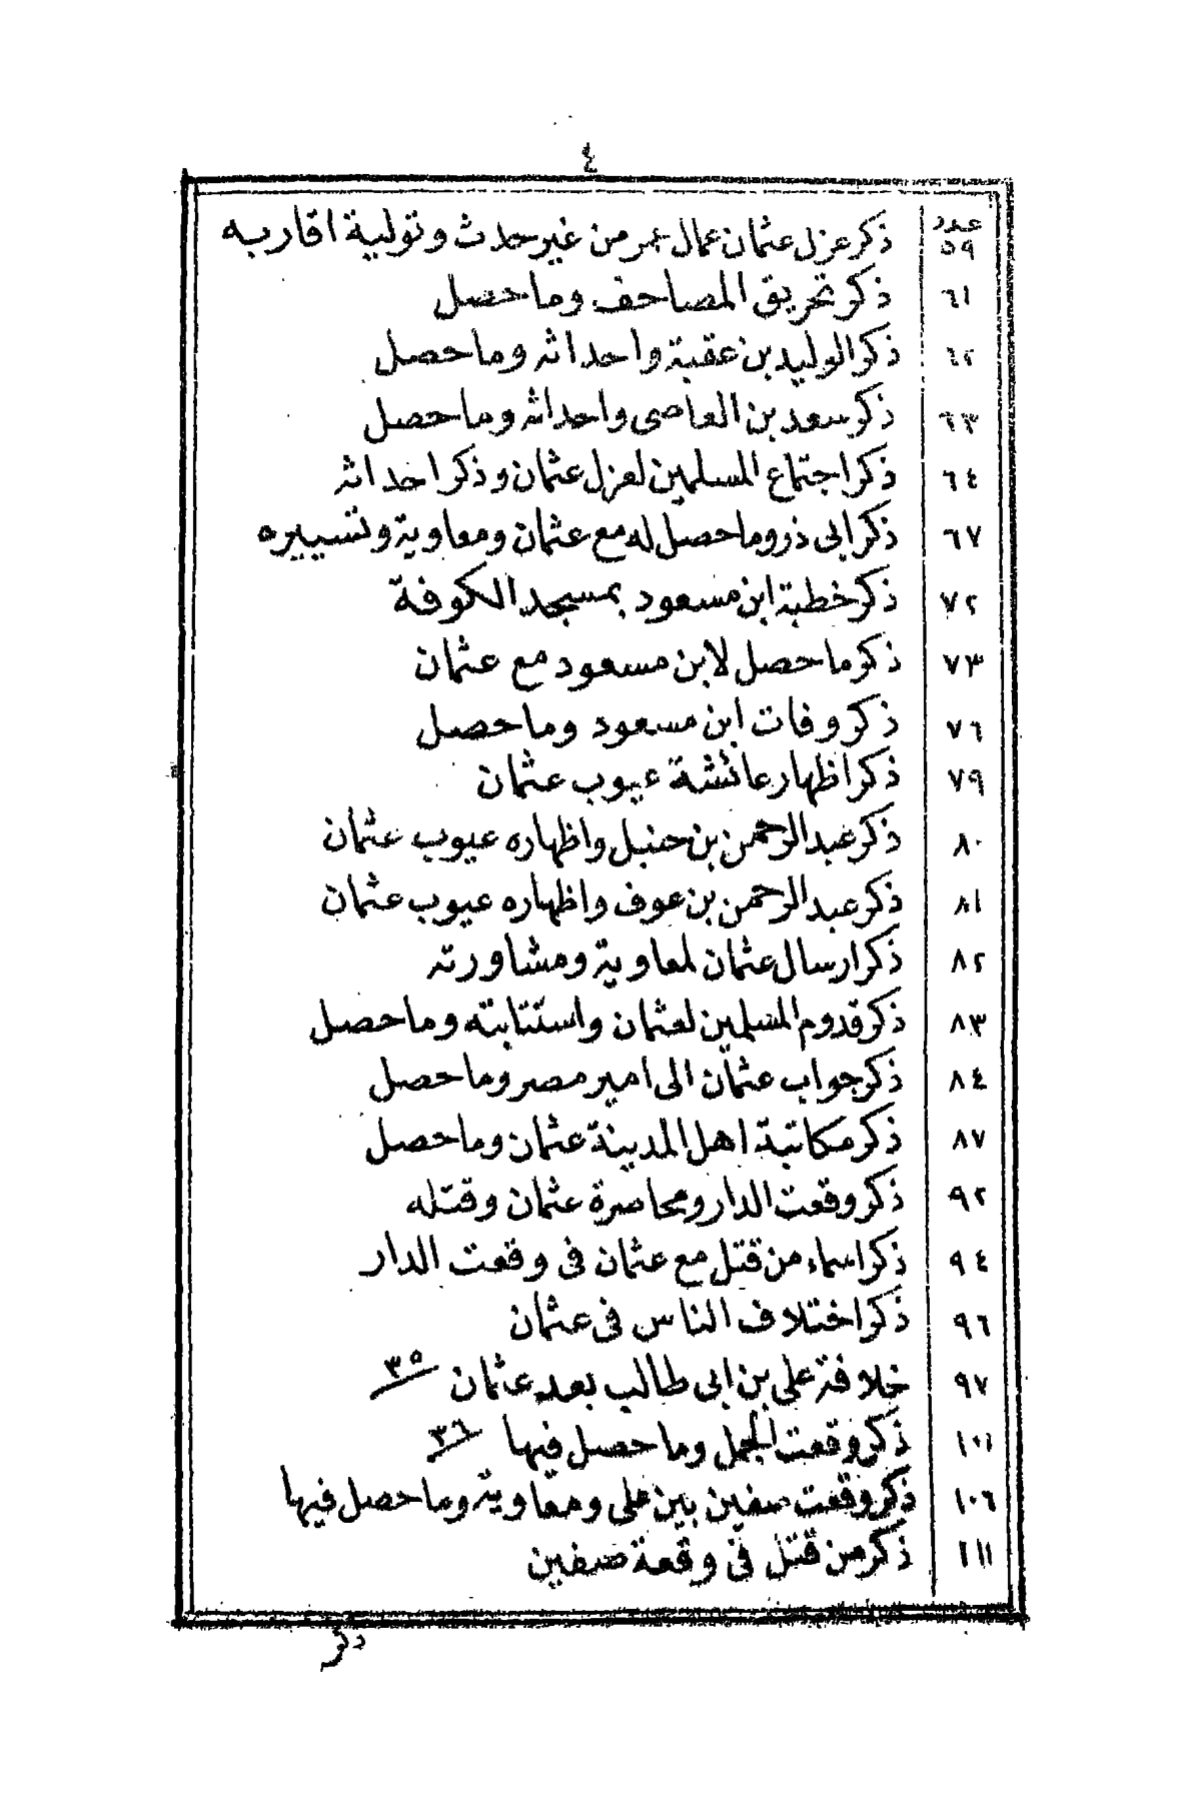 ٤
عدد
٥٩ ذكر عزل عثمان عمال عمر من غير حدث وتولية اقاربه
٦١ ذكر تحريق المصاحف وما حصل
٦٢ ذكر الوليد بن عقبة واحداثه وما حصل
٦٣ ذكر سعد بن العاصى واحداثه وما حصل
٦٤ ذكر اجتماع المسلمين لعزل عثمان وذكر احداثه
٦٧ ذكر ابى ذر وما حصل له مع عثمان ومعاوية وتسييره
٧٢ ذكر خطبة ابن مسعود بمسجد الكوفة
٧٣ ذكر ما حصل لابن مسعود مع عثمان
٧٦ ذكر وفات ابن مسعود وما حصل
٧٩ ذكر اظهار عائشة عيوب عثمان
٨٠ ذكر عبد الرحمن بن حنبل واظهاره عيوب عثمان
٨١ ذكر عبد الرحمن بن عوف واظهاره عيوب عثمان
٨٢ ذكر ارسال عثمان لمعاوية ومشاورته
٨٣ ذكر قدوم المسلمين لعثمان واستتابته وما حصل
٨٤ ذكر جواب عثمان الى امير مصر وما حصل
٨٧ ذكر مكاتبة اهل المدينة عثمان وما حصل
٩٢ ذكر وقعت الدار ومحاصرة عثمان وقتله
٩٤ ذكر اسماء من قتل مع عثمان فى وقعت الدار
٩٦ ذكر اختلاف الناس فى عثمان
٩٧ خلافة على بن ابى طالب بعد عثمان ٣٥
١٠١ ذكر وقعت الجمل وما حصل فيها ٣٦
١٠٦ ذكر وقعت صفين بين على ومعاوية وما حصل فيها
١١١ ذكر من قتل فى وقعة صفين
ذكر